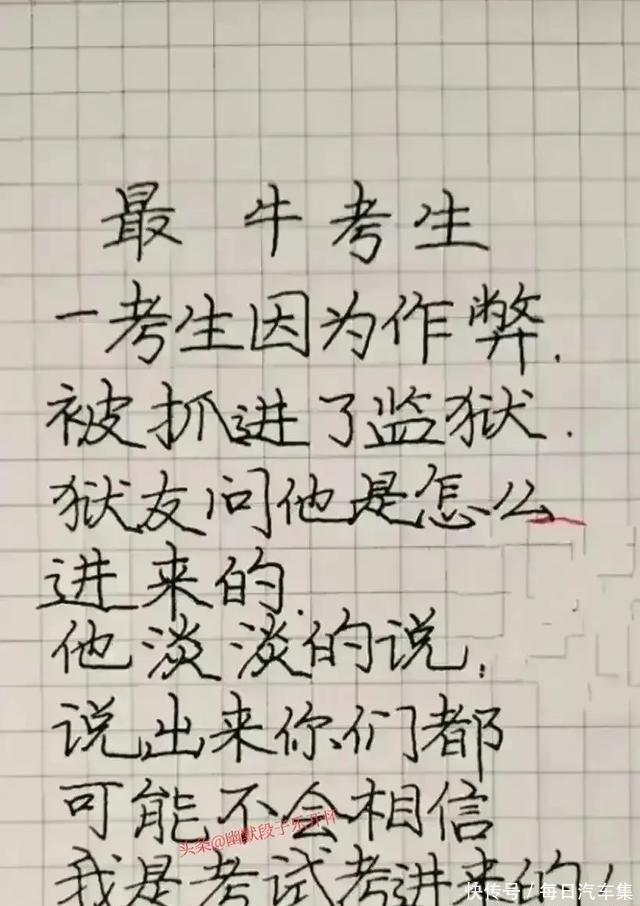 最牛考生
一考生因为作弊.
被抓进了监狱.
狱友问他是怎么
进来的.
他淡淡的说,
说出来你们都
可能不会相信
头条@幽默段子乐开怀
我是考试考进来的!
快传号/每日汽车集